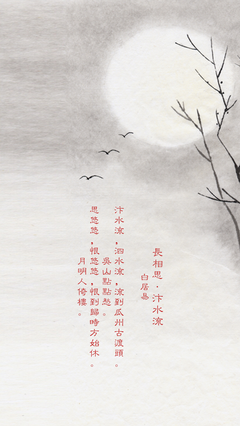 長相思·汴水流
白居易
汴水流，泗水流，流到瓜州古渡頭。
吳山點點愁。
思悠悠，恨悠悠，恨到歸時方始休。
月明人倚樓。